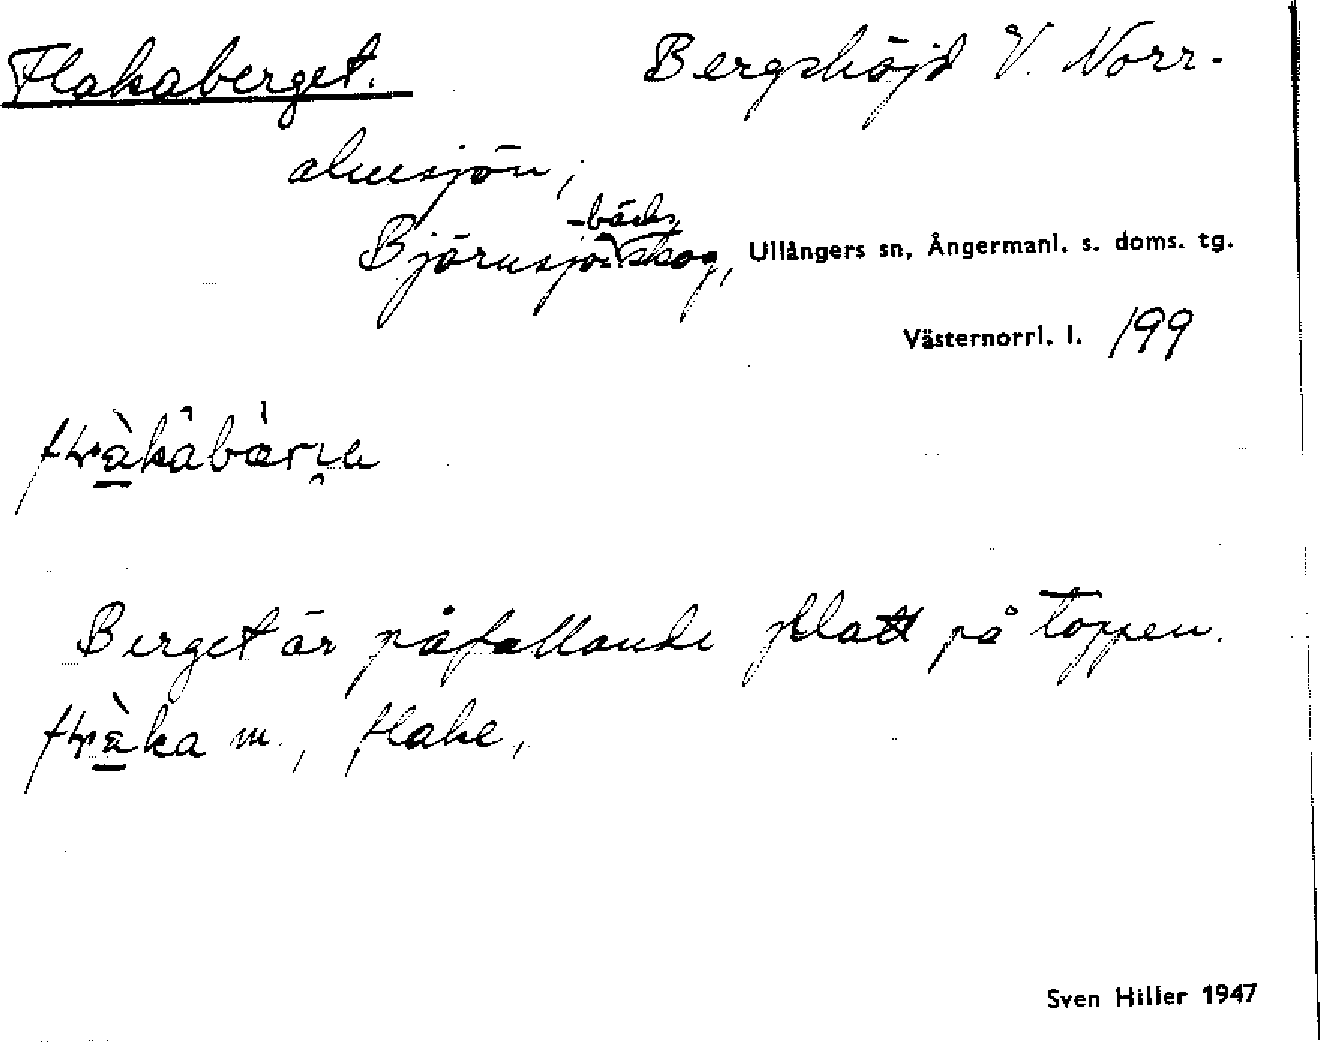 Flakaberget. Bergshöjd V. Norr-
almsjön,
-bäcks
Björnsjöskog, Ullångers sn, Ångermanl. s. doms. tg.
Västernorrl. l. 199
Berget är påfallande flatt på toppen.
m., flake,
Sven Hiller 1947